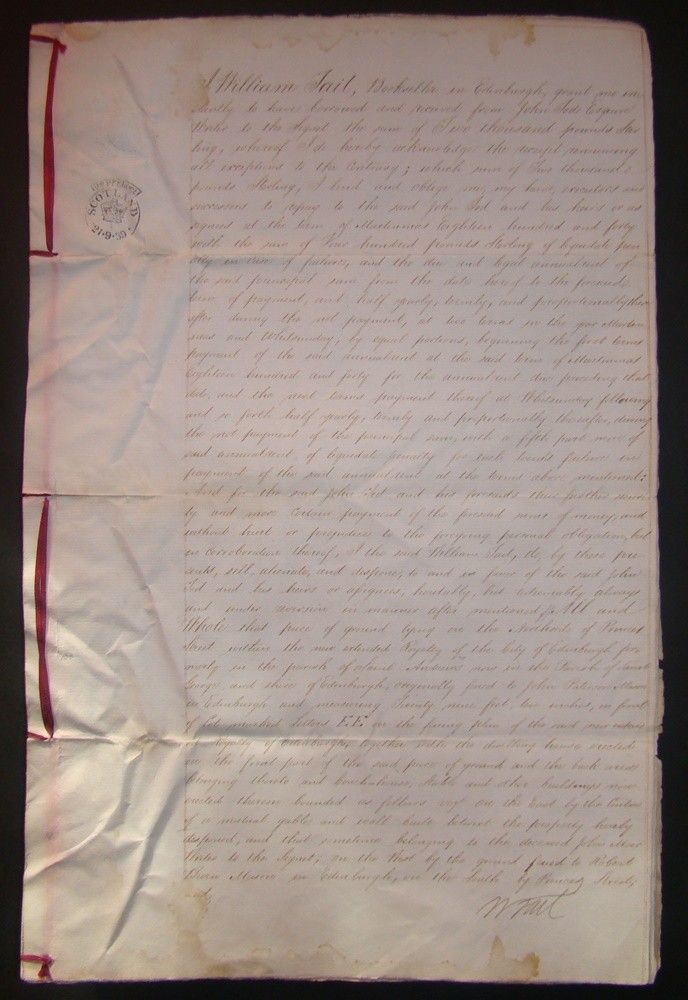 I William Tait, Bookseller in Edinburgh, grant me in
=stantly to have borrowed and received from John Tod Esquire
Writer to the Signet the sum of Two thousand pounds Ster
ling, whereof I do hereby acknowledge the receipt renouncing
all exceptions to the contrary; which sum of Two thousand
pounds Sterling, I bind and oblige me, my heirs, executors and
successors to repay to the said John Tod and his heirs or as
signees at the term of Martinmas Eighteen hundred and forty
with the sum of Four hundred pounds Sterling of liquidate pen
alty in case of failure, and the due and legal annualrent of
the said principal sum from the date hereof to the foresaid
term of payment, and half yearly, termly, and proportionally there
after during the not payment, at two terms in the year Martin
mas and Whitsunday, by equal portions, beginning the first terms
payment of the said annualrent at the said term of Martinmas
Eighteen hundred and forty for the annualrent due preceding that
date, and the next terms payment thereof at Whitsunday following
and so forth half yearly, termly and proportionally thereafter, during
the not payment of the principal sum, with a fifth part more of
said annualrent of liquidate penalty for each terms failure in
payment of the said annualrent at the terms above mentioned:
And for the said John Tod and his foresaids their further securi
ty and more certain payment of the foresaid sums of money, and
without hurt or prejudice to the foregoing personal obligation, but
in corroboration thereof, I the said William Tait, do, by these pre
sents, sell, alienate, and dispone, to and in favor of the said John
Tod and his heirs or assignees, heritably, but redeemably always
and under reversion in manner after mentioned, All and
Whole that piece of ground lying on the North side of Princes
Street within the new extended Royalty of the City of Edinburgh for
merly in the parish of Saint Andrews now in the Parish of Saint
George and shire of Edinburgh, originally feued to John Paterson Mason
in Edinburgh and measuring Twenty nine feet, two inches, in front
of Lot marked letters E.E. in the feuing plan of the said new extended
Royalty of Edinburgh, together with the dwelling house erected
on the front part of the said piece of ground and the back area
belonging thereto and coachhouse, stable and other buildings now
erected thereon bounded as follows vizt on the East by the Centre
of a mutual gable and wall built betwixt the property hereby
disponed, and that sometime belonging to the deceased John Moir
Writer to the Signet; on the West by the ground feued to Robert
Brown Mason in Edinburgh, on the South by Princes Street,
and,
W Tait
SCOTLAND
21·9·39